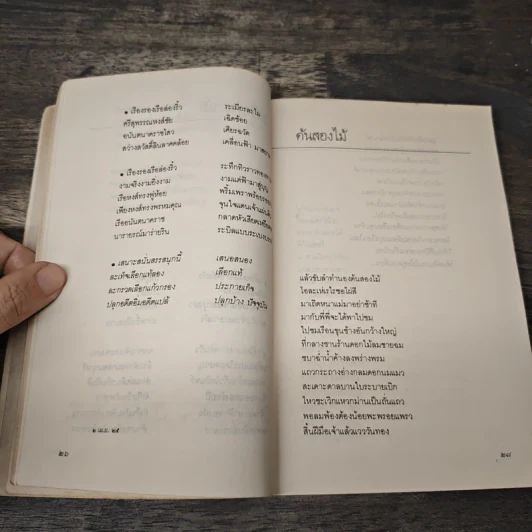 ● เรื่องรองเรือล่องริ้ว ระเมียรละไม
ศรีสุพรรณหงส์ชัย เฉิดช้อย
อนันตนาคราชไหว เศียรฉวัด
สว่างสวัสดิ์สินลาคคล้อย เคลื่อนฟ้า
● เรื่องรองเรือล่องริ้ว ระทึกทิวาราว
งามจริงงามยิ่งงาม งามแต่ฟ้ามาสู่
เรือหงส์ทรงพู่ห้อย พริ้มเพราพร้อย
เพียงหงส์ทรงพรหมคุณ ขุนใจแดน
เรืออนันตนาคราช กลาดหัวเลียด
นารายณ์มาร่ายริน ระบิลแบบ
● เสนาะสนั่นสรรสมุกนี้ เสนอสนอง
ละเท้งเลือกแท้ลอง เลือกแท้
ละกรวดเลือกแก้วกรอง ประกายเกิจ
ปลุกอดีตอิ่มอดีตแปล้ ปลูกบ้าง ปัจจุบัน
๒ เม.ย. ๒๕
๒๖
คันสองไม้
แล้วขับลำทำนองคันสองไม้
โอละเห่เรไรขอไผ่สี
มาเถิดหนาแม่มาอย่าช้าที
มากับพี่พี่จะได้พาไปชม
ไปชมเรือนขุนช้างอันกว้างใหญ่
ที่กลางชานร้านดอกไม้ลมชายฉม
ชบาฉ่ำน้ำค้างลงพร่างพรม
แถวกระถางอ่างกลมดอกนมแมว
สะเดาะดาลบานใบระบายเบิก
ไหวชะเวิกแหวกม่านเป็นถิ่นแถว
พอลมพ้องต้องน้อยพะพรอยแพรว
สิ้นฝีมือเจ้าแล้วแววันทอง
๒๗